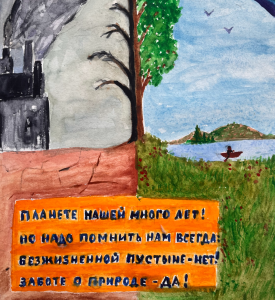 ПЛАНЕТЕ НАШЕЙ МНОГО ЛЕТ!
НО НАДО ПОМНИТЬ НАМ ВСЕГДА:
БЕЗЖИЗНЕННОЙ ПУСТЫНЕ-НЕТ!
ЗАБОТЕ О ПРИРОДЕ-ДА!